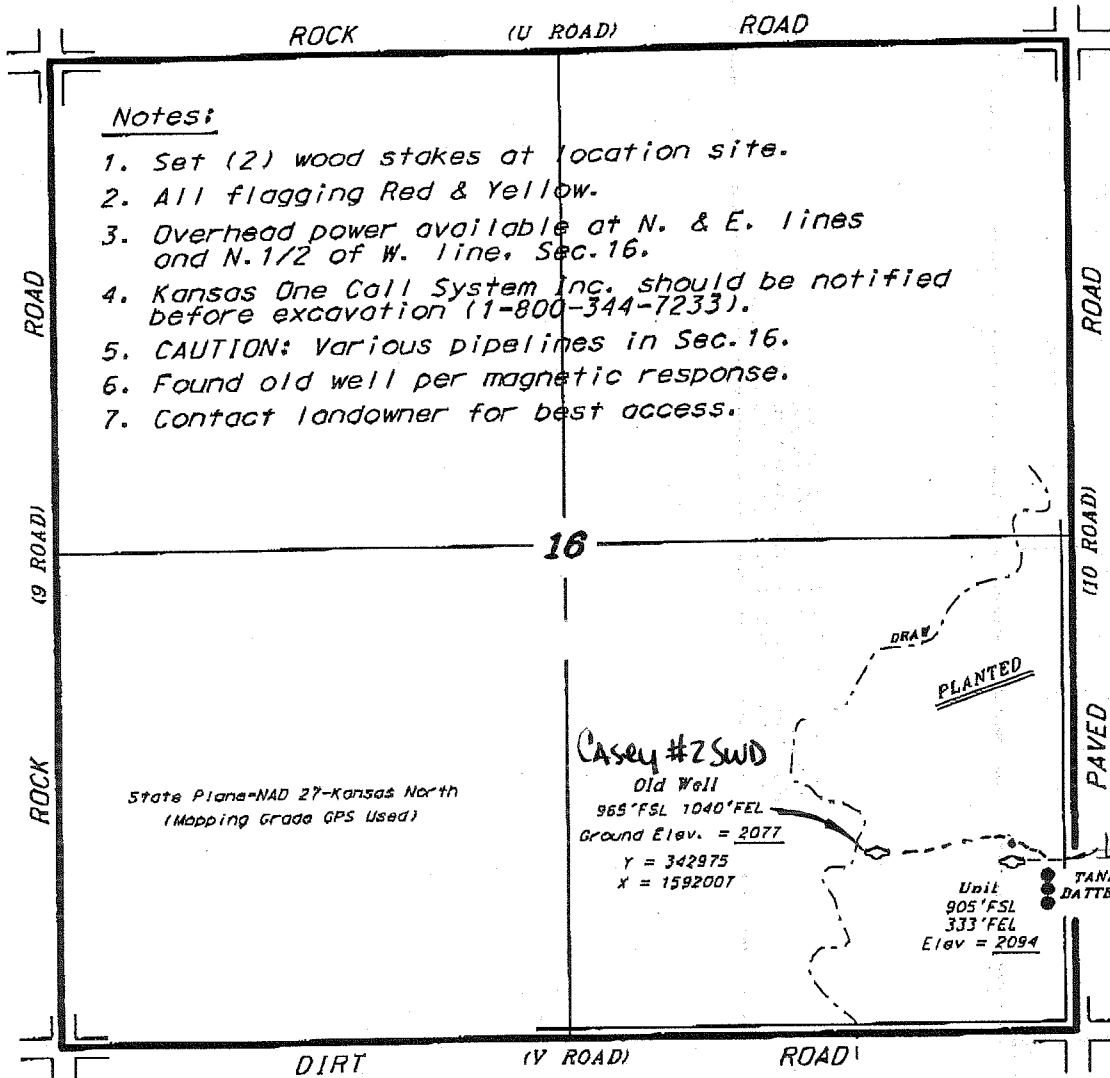 ROCK (U ROAD) ROAD
Notes:
1. Set (2) wood stakes at location site.
2. All flagging Red & Yellow.
3. Overhead power available at N. & E. lines
and N.1/2 of W. line, Sec.16.
4. Kansas One Call System Inc. should be notified
before excavation (1-800-344-7233).
5. CAUTION: Various pipelines in Sec.16.
6. Found old well per magnetic response.
7. Contact landowner for best access.
ROAD
(9 ROAD)
ROCK
ROAD
(10 ROAD)
PAVED
16
DRAW
PLANTED
Casey #2 SWD
Old Well
965'FSL 1040'FEL
Ground Elev. = 2077
Y = 342975
X = 1592007
State Plane=NAD 27-Kansas North
(Mapping Grade GPS Used)
Unit
905'FSL
333'FEL
Elev = 2094
TAN
BATTE
DIRT (V ROAD) ROAD